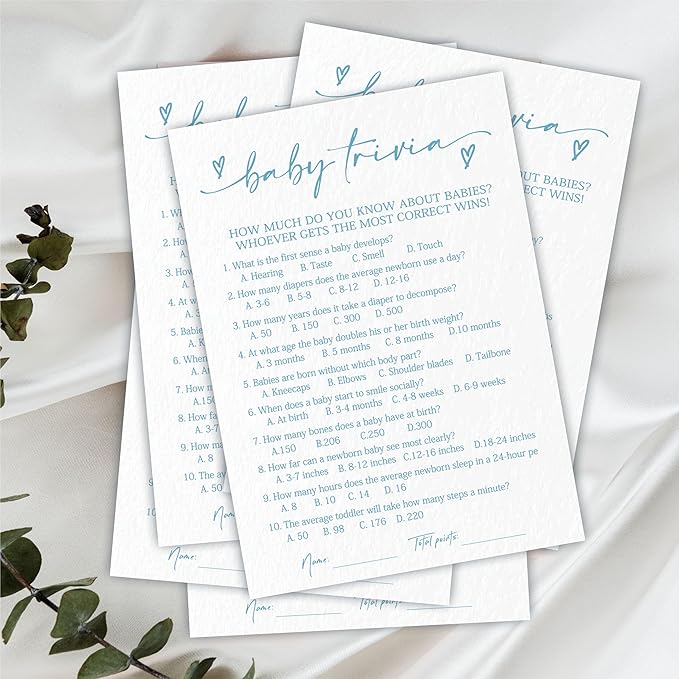 baby trivia
HOW MUCH DO YOU KNOW ABOUT BABIES?
WHOEVER GETS THE MOST CORRECT WINS!
1. What is the first sense a baby develops?
A. Hearing B. Taste C. Smell D. Touch
2. How many diapers does the average newborn use a day?
A. 3-6 B. 5-8 C. 8-12 D. 12-16
3. How many years does it take a diaper to decompose?
A. 50 B. 150 C. 300 D. 500
4. At what age the baby doubles his or her birth weight?
A. 3 months B. 5 months C. 8 months D.10 months
5. Babies are born without which body part?
A. Kneecaps B. Elbows C. Shoulder blades D. Tailbone
6. When does a baby start to smile socially?
A. At birth B. 3-4 months C. 4-8 weeks D. 6-9 weeks
7. How many bones does a baby have at birth?
A.150 B.206 C.250 D.300
8. How far can a newborn baby see most clearly?
A. 3-7 inches B. 8-12 inches C.12-16 inches D.18-24 inches
9. How many hours does the average newborn sleep in a 24-hour pe
A. 8 B. 10 C. 14 D. 16
10. The average toddler will take how many steps a minute?
A. 50 B. 98 C. 176 D. 220
Name: Total points:
baby
1. Wh
2. How
3. How
A. 5
4. At w
A. 3
5. Babies
A. K
6. When
A. At
7. How m
A.150
8. How fa
A. 3-7
9. How m
A. 8
10. The av
A. 50
Name:
via
OUT BABIES?
ECT WINS!
Name:
Name: Total points: